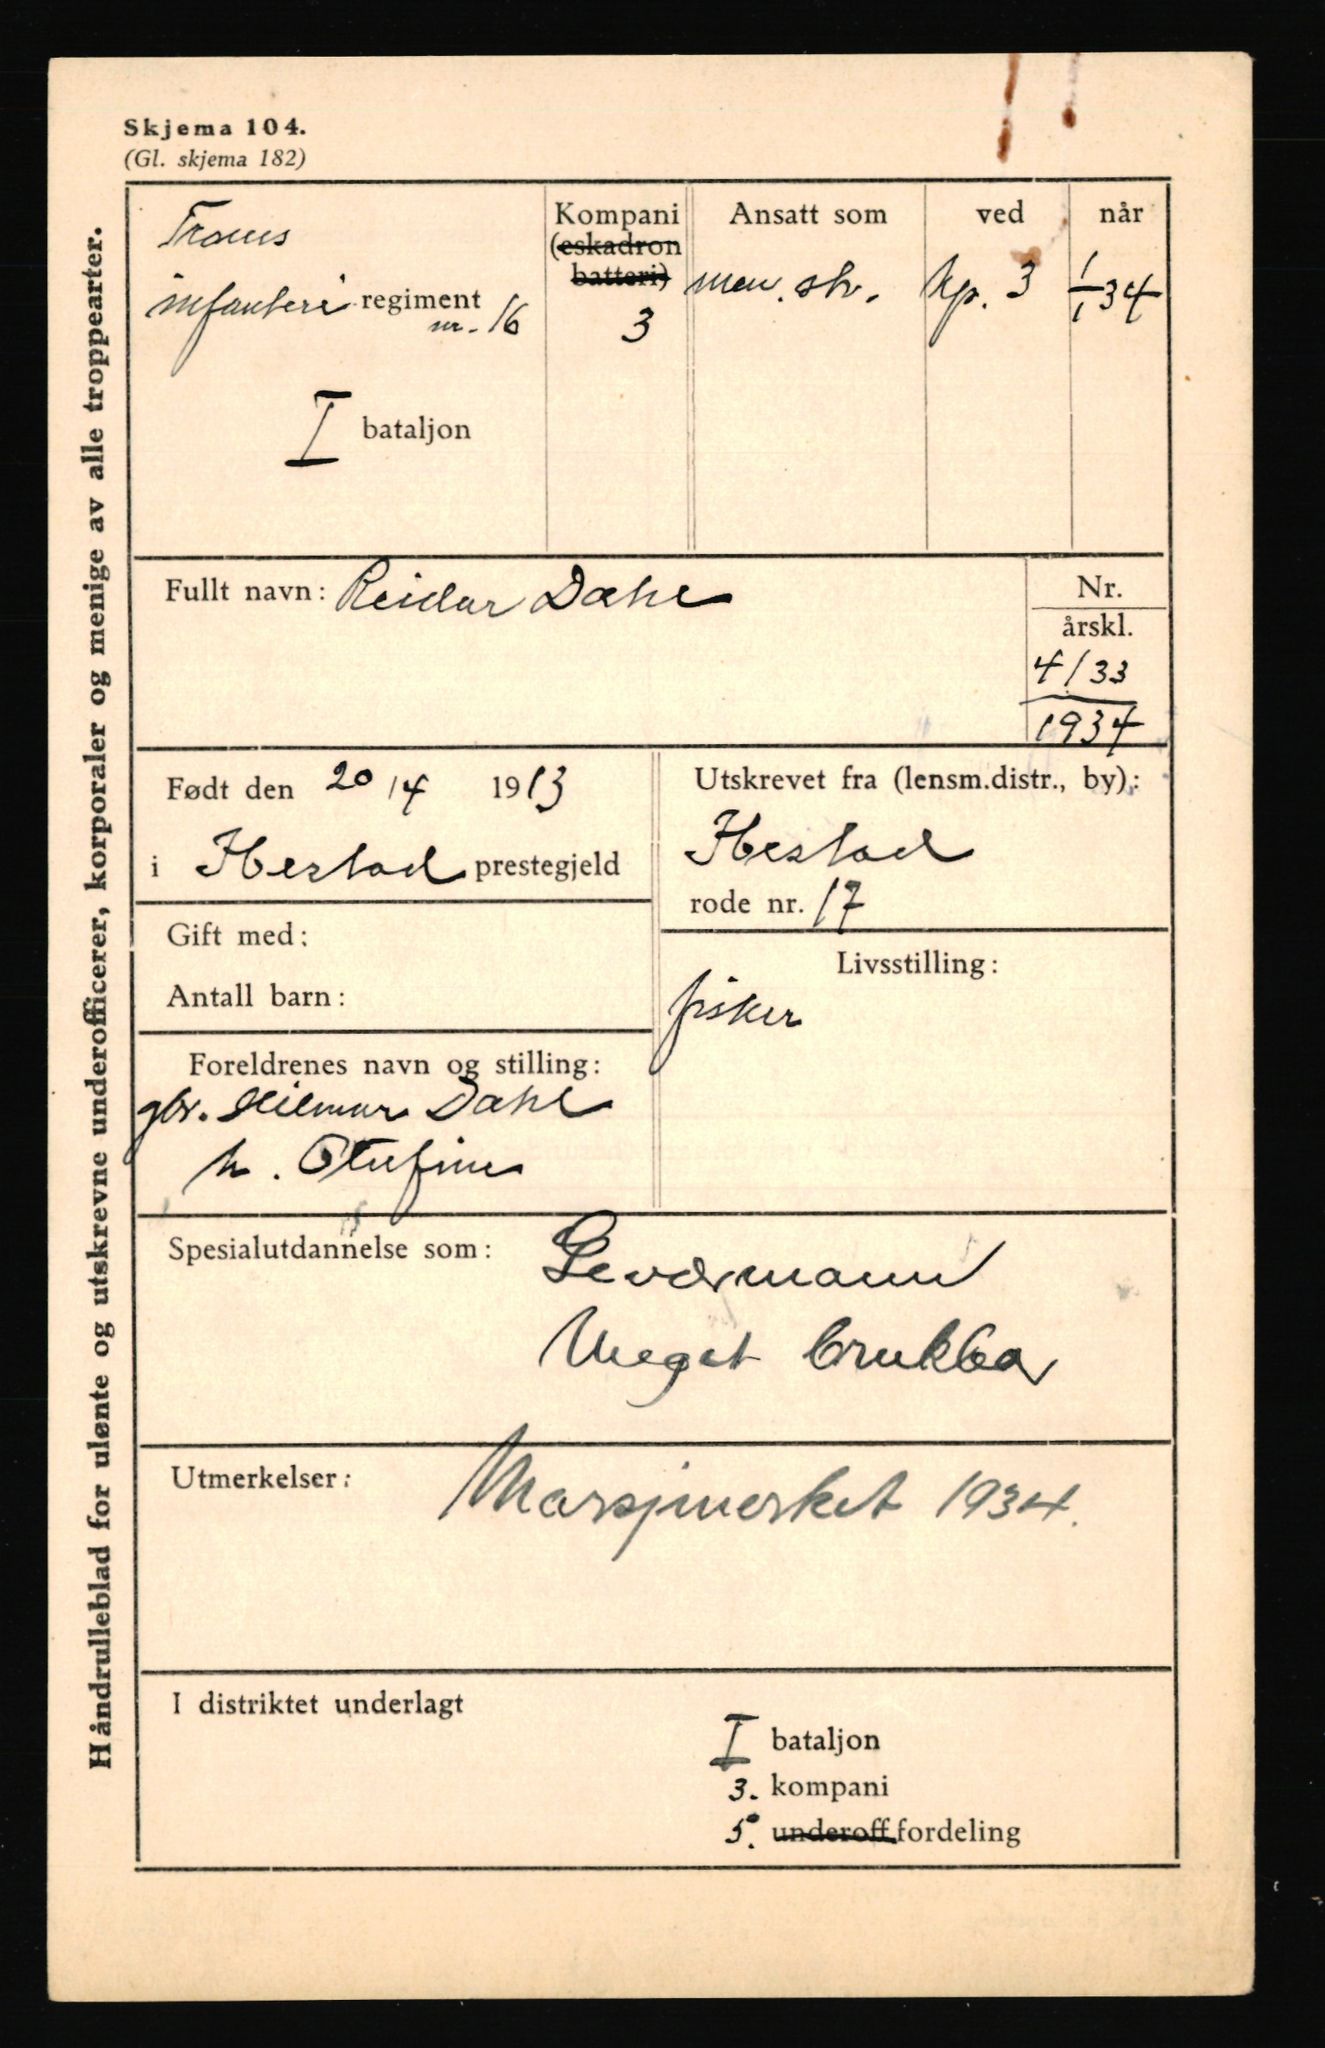 Skjema 104.
(Gl. skjema 182)
Håndrulleblad for ulønte og utskrevne underofficerer, korporaler og menige av alle troppearter.
Troms
infanteri regiment
nr. 16
I bataljon
Kompani
(eskadron
batteri)
3
Ansatt som
men. str.
ved
kp. 3
når
1/1 34
Fullt navn: Reidar Dahl
Nr.
årskl.
4/33
1934
Født den 20/4 1913
i Ibestad prestegjeld
Utskrevet fra (lensm.distr., by):
Ibestad
rode nr. 17
Gift med:
Antall barn:
Livsstilling:
fisker
Foreldrenes navn og stilling:
gbr. Hilmar Dahl
h. Olufine
Spesialutdannelse som:
Geværmann
Meget brukbar
Utmerkelser:
Marsjmerket 1934.
I distriktet underlagt
I bataljon
3. kompani
5. underoff.fordeling